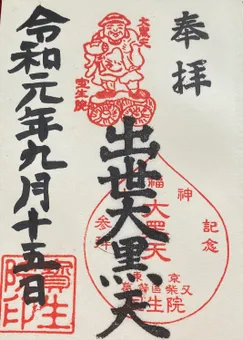 奉拝
出世大黒天
令和元年九月十五日
大黒天
宝生院
福神
大黒天
参拝
記念
東京
葛飾區柴又
宝生院
寶生院印